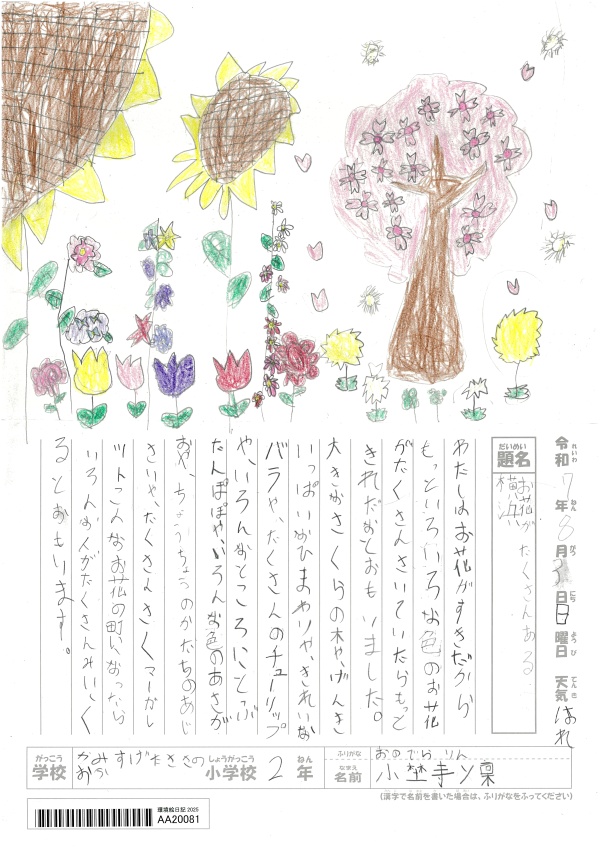 令和7年8月3日日曜日 天気 はれ
れいわ ねん がつ にち ようび てんき
だいめい
題名
お花がたくさんある
横浜
わたしはお花がすきだから
もっといろいろな色のお花
がたくさんさいていたらもっと
きれだなとおもいました。
大きなさくらの木や、げんき
いっぱいなひまわりや、きれいな
バラや、たくさんのチューリップ
や、いろんなところにとぶ
たんぽぽや、いろんな色のあさが
おや、ちょうちょうのかたちのあじ
さいや、たくさんさくマーガレ
ットこんなお花の町になったら
いろんな人がたくさんみにく
るとおもいます。
がっこう
学校
かみすげたささの
しょうがっこう
小学校 2 ねん
年
ふりがな おのでら りん
なまえ
名前 小埜寺
(漢字で名前を書いた場合は、ふりがなをふってください)
環境絵日記:2025
AA20081